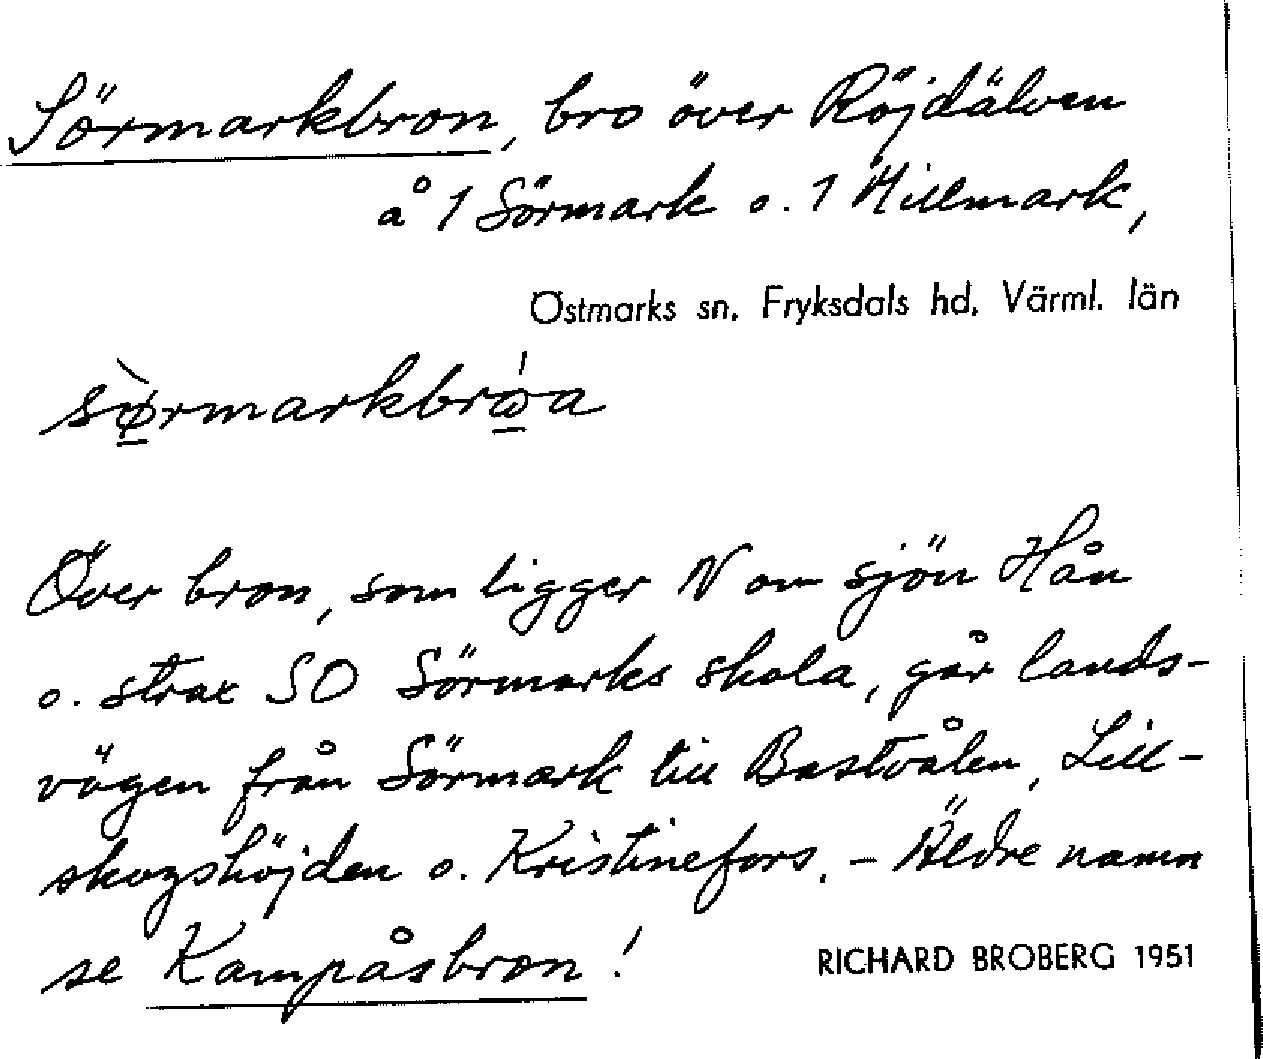 Sörmarkbron, bro över Röjdälven
å 1 Sörmark o. 1 Millmark,
Östmarks sn. Fryksdals hd. Värml. län
sø̠̀rmarkbrώ̠a
Över bron, som ligger N om sjön Hån
o. strax SO Sörmarks skola, går lands-
vägen från Sörmark till Bastvålen, Lill-
skogshöjden o. Kristinefors. – Äldre namn
se Kampåsbron!
RICHARD BROBERG 1951